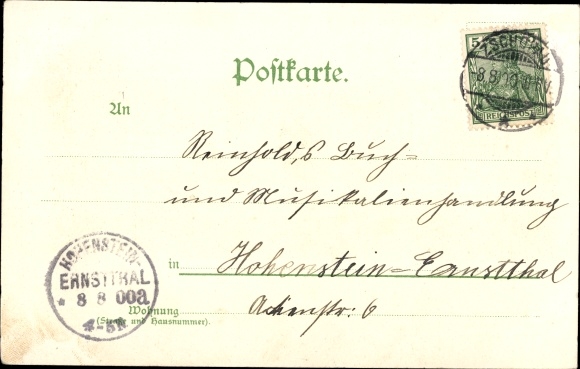 Postkarte.
5
ZSCHOPAU
8.8.00
REICHSPOST
An
Reinhold,s Buch-
und Musikalienhandlung
in Hohenstein-Ernstthal
HOHENSTEIN-
ERNSTTHAL
* 8 8 00a
4-5N
Wohnung
(Straße und Hausnummer).